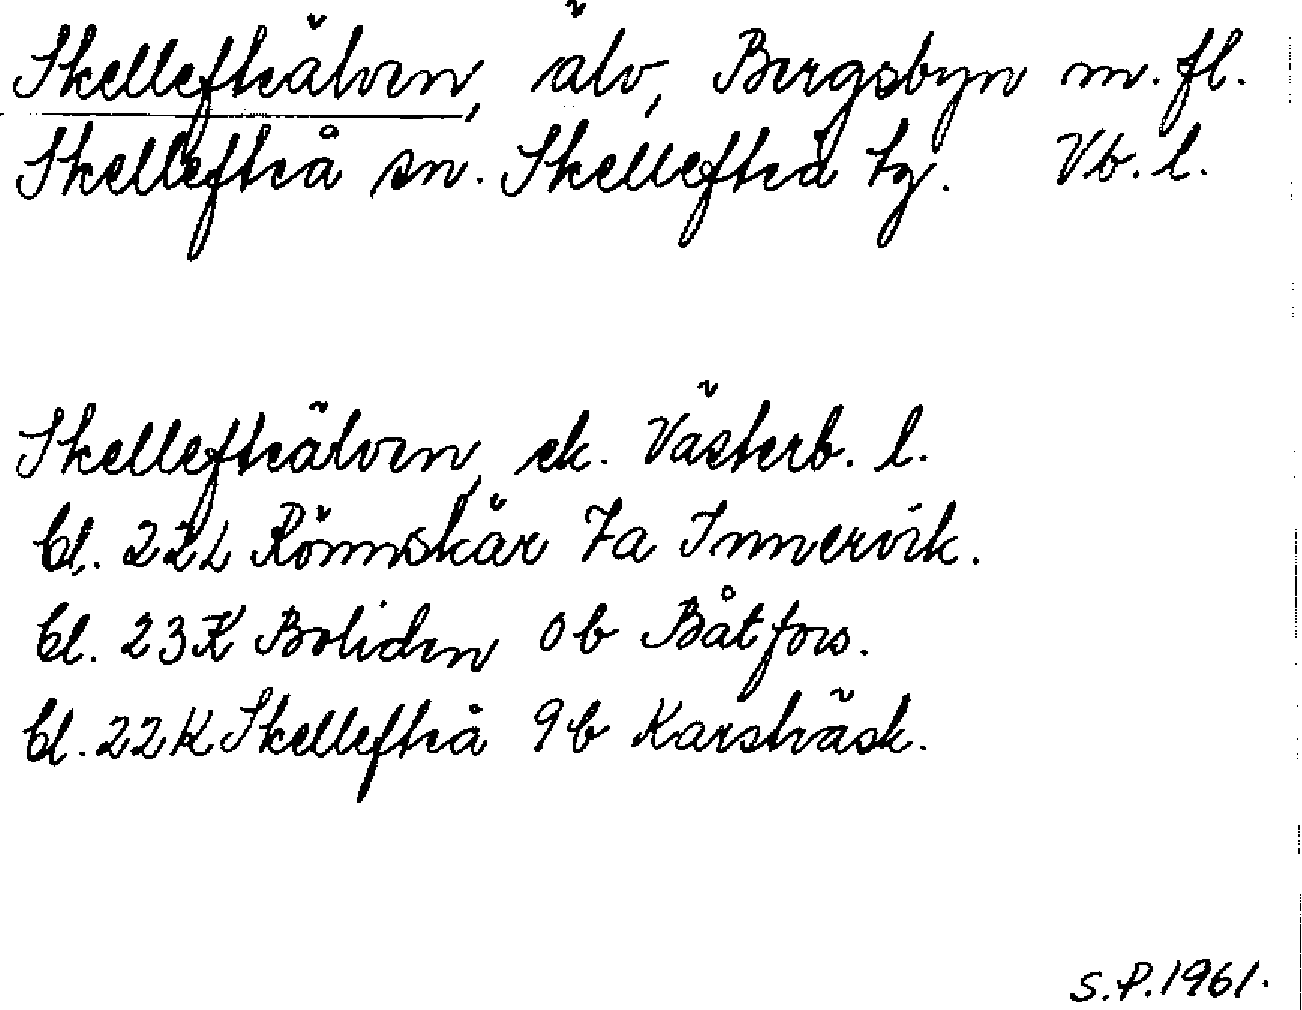 Skellefteälven, älv, Bergsbyn m. fl.
Skellefteå sn. Skellefteå tg. Vb. l.
Skellefteälven, ek. Västerb. l.
bl. 22L Rönnskär 7a Innervik.
bl. 23K Boliden 0b Båtfors.
bl. 22K Skellefteå 9b Karsträsk.
S.P. 1961.